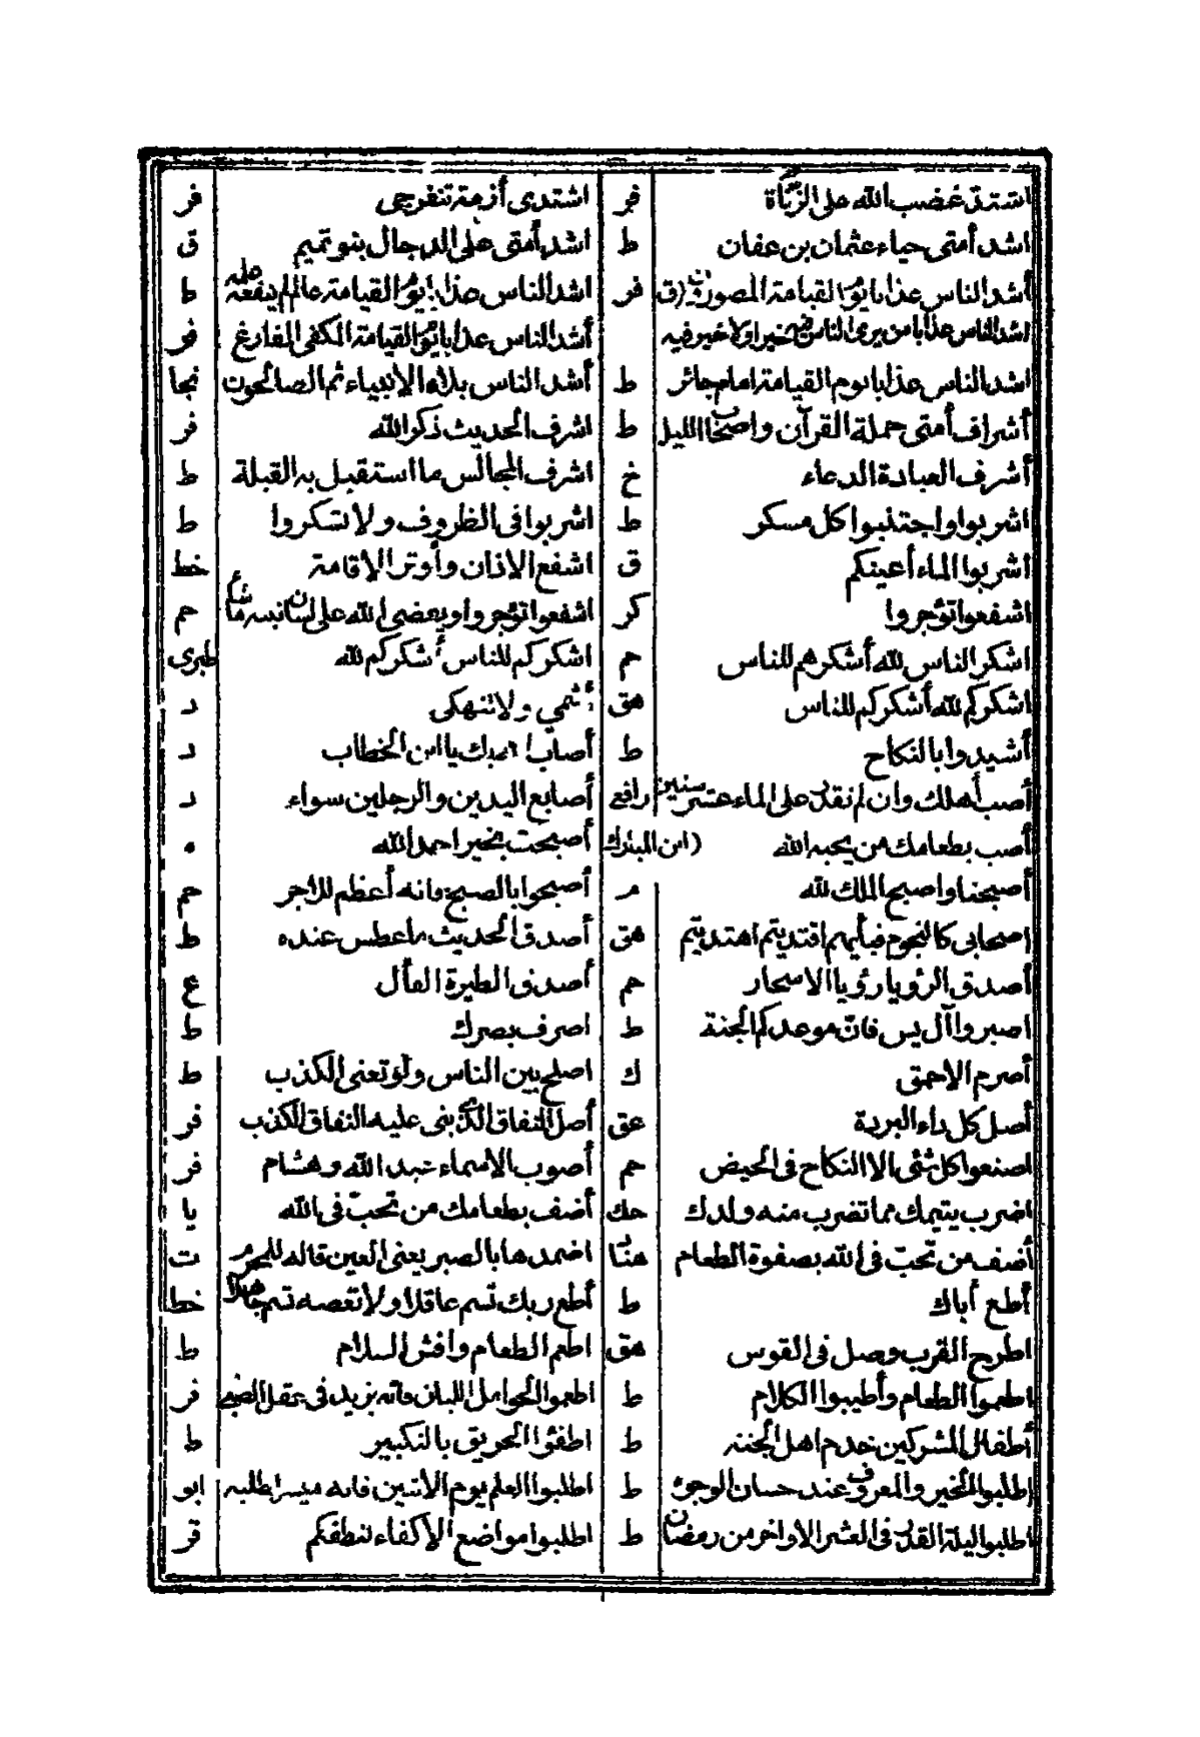 اشتد غضب الله على الزناة فر اشتدى أزمة تنفرجى فر
اشد أمتى حياء عثمان بن عفان ط اشد أمتى على الدجال بنو تميم ق
أشد الناس عذابا يوم القيامة المصورون (ق فر اشد الناس عذابا يوم القيامة عالم لم ينفعه علمه ط
اشد الناس عذابا من يرى الناس فيه خيرا ولا خير فيه أشد الناس عذابا يوم القيامة المكفى الفارغ فر
اشد الناس عذابا يوم القيامة امام جائر ط أشد الناس بلاء الأنبياء ثم الصالحون نجا
أشراف أمتى حملة القرآن واصحاب الليل ط اشرف الحديث ذكر الله فر
أشرف العبادة الدعاء خ اشرف المجالس ما استقبل به القبلة ط
اشربوا واجتنبوا كل مسكر ط اشربوا فى الظروف ولا تسكروا ط
اشربوا الماء أعينكم ق اشفع الاذان وأوتر الاقامة خط
اشفعوا تؤجروا كر اشفعوا تؤجروا ويقضى الله على لسان نبيه ما شاء حم
اشكر الناس لله أشكرهم للناس حم اشكركم للناس أشكركم لله طبرى
اشكركم لله أشكركم للناس هق أشمي ولا تنهكى د
أشيدوا بالنكاح ط أصاب الله بك يا ابن الخطاب د
أصب أهلك وان لم نقدر على الماء عشر سنين رافع أصابع اليدين والرجلين سواء د
أصب بطعامك من يحبه الله (ابن المبارك أصبحت بخير احمد الله ه
أصبحنا واصبح الملك لله م أصبحوا بالصبح فانه أعظم للاجر حم
اصحابى كالنجوم فبأيهم اقتديتم اهتديتم هق أصدق الحديث ما عطس عنده ط
أصدق الرؤيا رؤيا الاسحار حم أصدق الطيرة الفأل ع
اصبروا آل يس فان موعدكم الجنة ط اصرف بصرك ط
أصرم الاحمق ك اصلح بين الناس ولو تعنى الكذب ط
أصل كل داء البردة عق أصل النفاق الذى بنى عليه النفاق الكذب فر
اصنعوا كل شئ الا النكاح فى الحيض حم أصوب الاسماء عبد الله وهشام فر
اضرب يتيمك مما تضرب منه ولدك حك أضف بطعامك من تحب فى الله يا
أضف من تحب فى الله بصفوة الطعام هناد اضمدها بالصبر يعنى العين قاله للمحرم ت
أطع أباك ط أطع ربك تسم عاقلا ولا تعصه تسم جاهلا خط
اطرح القرب وصل فى القوس هق اطعم الطعام وافش السلام ط
اطعموا الطعام وأطيبوا الكلام ط اطعموا الحوامل اللبان فانه يزيد فى عقل الصبى فر
أطفال المشركين خدم اهل الجنة ط اطفئوا الحريق بالتكبير ط
اطلبوا الخير والمعروف عند حسان الوجوه ط اطلبوا العلم يوم الاثنين فانه ميسر لطلبه ابو
اطلبوا ليلة القدر فى العشر الاواخر من رمضان ط اطلبوا مواضع الاكفاء لنطفكم قر